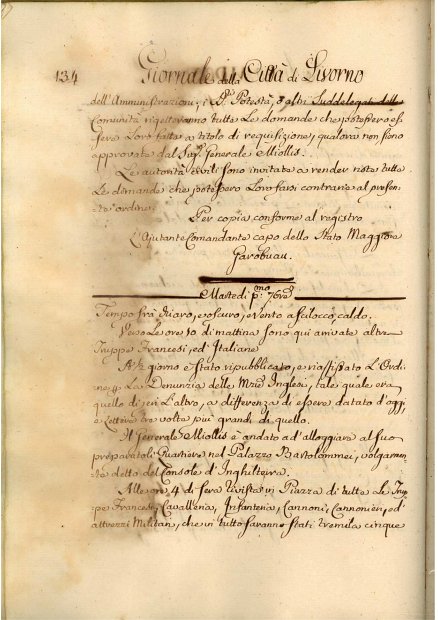 134 Giornale della Città di Livorno
dell'Amministrazioni, i SS.i Potestà, o altri Suddelegati delle
Comunità rigetteranno tutte Le domande che potessero es-
sere Loro fatte a titolo di requisizione, qualora non siano
approvate dal Sig.e Generale Miollis.
Le autorità civili sono invitate a render nista tutte
Le domande che potessero Loro farsi contrarie al presen-
te ordine.
Per copia conforme al registro
L'Ajutante Comandante capo dello Stato Maggiore
Garobuau.
Martedì p.mo 7bre
Tempo frà chiaro, e oscuro, e vento a scilocco, caldo.
Verso Le ore 10 di mattina sono qui arrivate altre
Truppe Francesi, ed' Italiane
A giorno è Stato ripubblicato, e riaffissato L'Ordi-
ne La Denunzia delle Inglesi, tale quale era
quello di jeri L'altro, a differenza di essere datato d'oggi,
e Lettere tre volte più grandi di quello.
Il Generale Miollis è andato ad'alloggiare al suo
preparatoli Quartiere nel Palazzo Bartolommei, volgarmen-
te detto del Console d'Inghilterra.
Alle ore 4 di sera Rivista in Piazza di tutte Le Trup-
pe Francesi, Cavalleria, Infanteria, Cannoni, Cannonieri, ed'
attrezzi Militari, che in tutto saranno stati tremila cinque